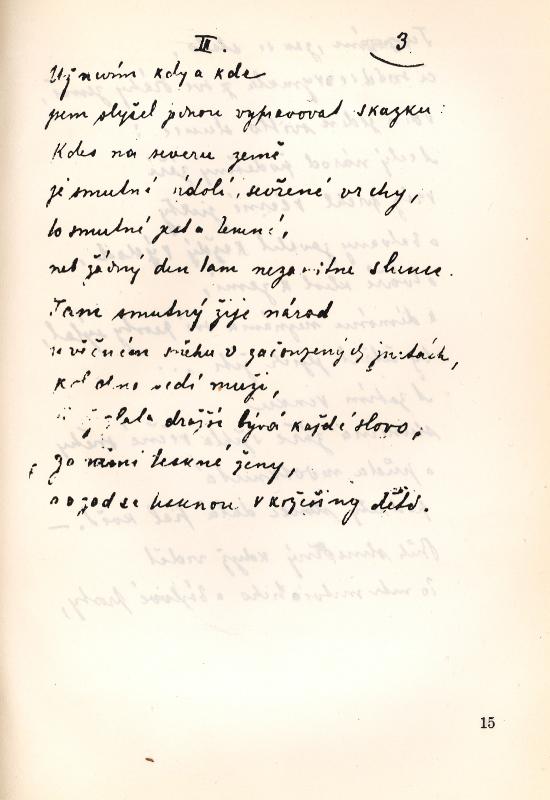 II. 3
Už nevím kdy a kde
jsem slyšel jednou vypravovat skazku:
Kdes na severu země
je smutné údolí, sevřené vrchy,
to smutné je a temné,
neb žádny den tam nezasvitne slunce.
Tam smutný žije národ
ve věčném sněhu v začouzených jurtách,
kol ohně sedí muži,
zlata dražší bývá každé slovo,
za nimi teskné ženy,
a vzad se tisknou v kožešiny děti.
15